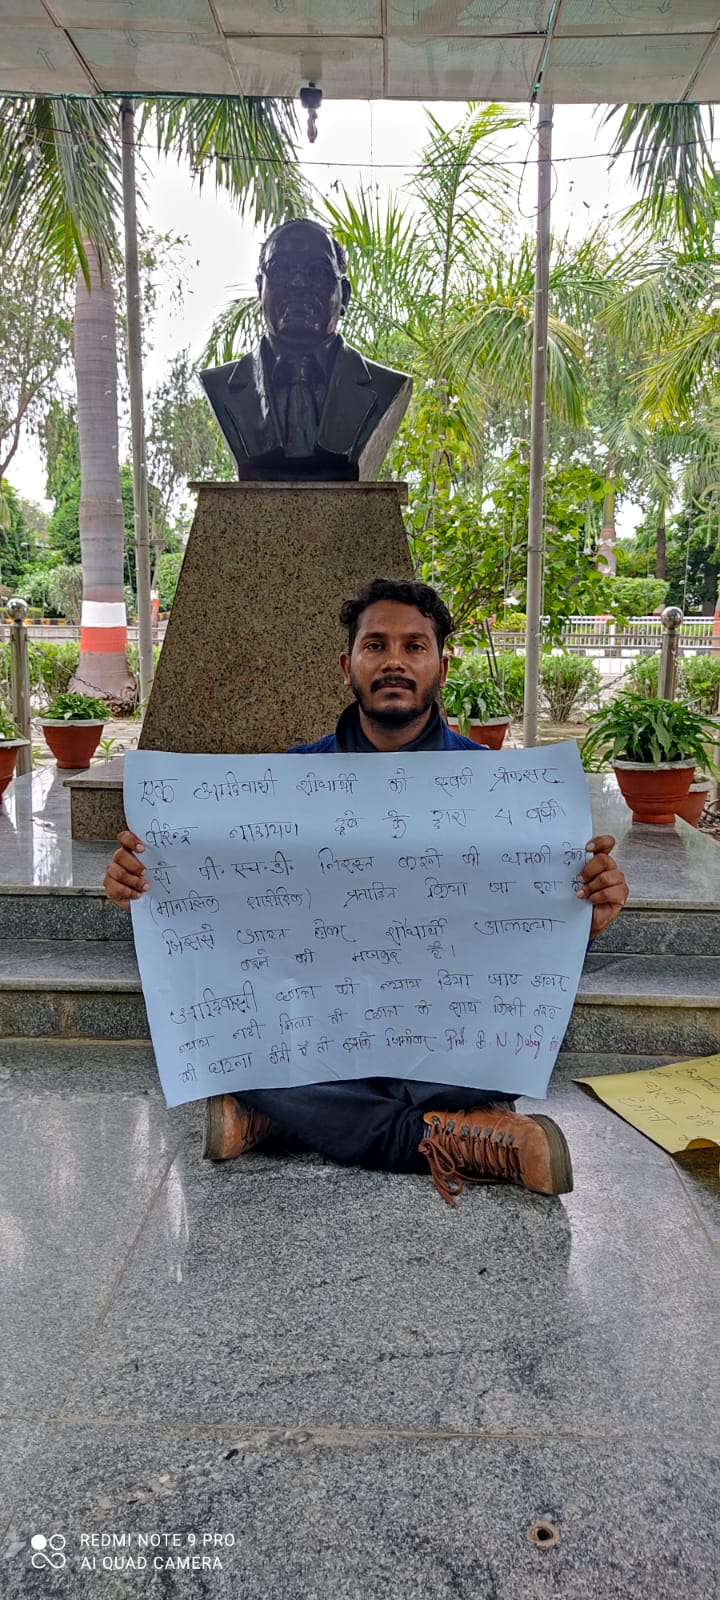 एक आदिवासी शोधार्थी को स्वर्ण प्रोफेसर
वीरेन्द्र नारायण दुबे के द्वारा 4 वर्षों
से पी.एच.डी. निरस्त करने की धमकी देकर
(मानसिक शारीरिक) प्रताड़ित किया जा रहा है
जिससे आहत होकर शोधार्थी आत्महत्या
करने को मजबूर है।
आदिवासी छात्र को न्याय दिया जाए अगर
न्याय नहीं मिला तो छात्र के साथ किसी तरह
की घटना होती है तो इसके जिम्मेवार Prof. B. N. Dubey
REDMI NOTE 9 PRO
AI QUAD CAMERA